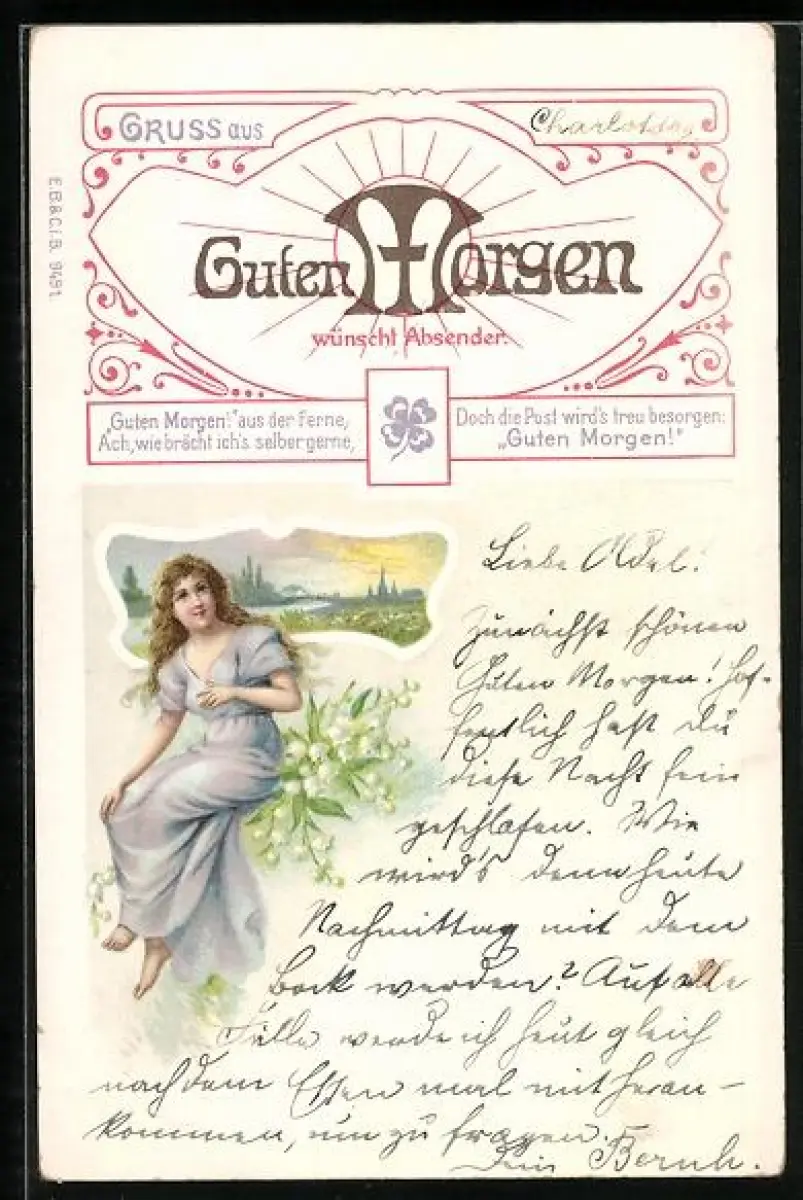 GRUSS aus
Guten Morgen
wünscht Absender.
E.B.&C.i.B. 9491.
„Guten Morgen!" aus der Ferne,
Ach, wie brächt ich's selber gerne,
Doch die Post wird's treu besorgen:
„Guten Morgen!"
Liebe Adel!
Zunächst schönen
Guten Morgen! Hof-
fentlich hast Du
diese Nacht fein
geschlafen. Wie
wird's denn heute
Nachmittag mit dem
Bock werden? Auf alle
Fälle werde ich heut gleich
nach dem Essen mal mit heran-
kommen, um zu fragen.
Dein Bernh.